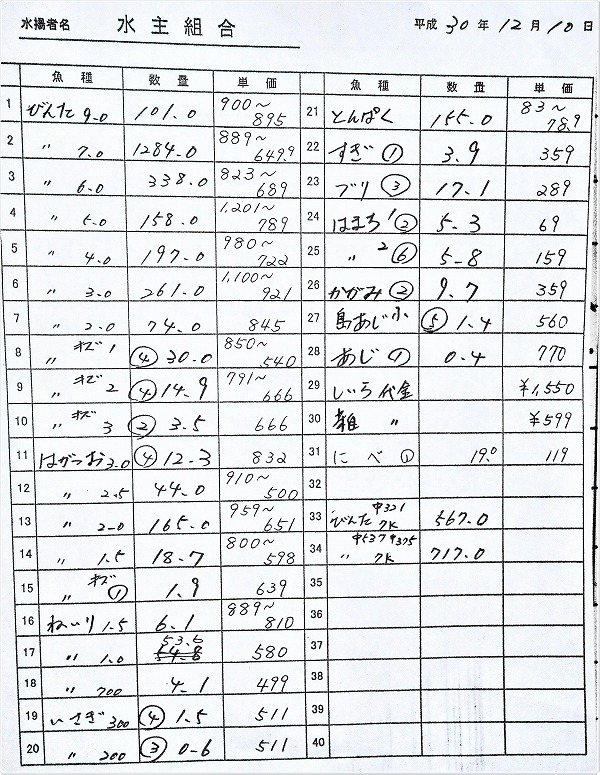 水揚者名 水主組合 平成30年12月10日
魚種 数量 単価
1 びんた 9.0 101.0 900~895
2 〃 7.0 1284.0 889~649.9
3 〃 6.0 338.0 823~689
4 〃 5.0 158.0 1,201~789
5 〃 4.0 197.0 980~722
6 〃 3.0 261.0 1,100~921
7 〃 2.0 74.0 845
8 〃 キズ 1 ④ 30.0 850~540
9 〃 キズ 2 ④ 14.9 791~666
10 〃 キズ 3 ② 3.5 666
11 はがつお 3.0 ④ 12.3 832
12 〃 2.5 44.0 910~500
13 〃 2.0 165.0 959~651
14 〃 1.5 18.7 800~598
15 〃 キズ ① 1.9 639
16 ねいり 1.5 6.1 889~810
17 〃 1.0 53.6 54.8 580
18 〃 700 4.1 499
19 いさぎ 300 ④ 1.5 511
20 〃 200 ③ 0.6 511
魚種 数量 単価
21 とんぱく 155.0 83~78.9
22 すぎ ① 3.9 359
23 ブリ ③ 17.1 289
24 はまち 1 ② 5.3 69
25 〃 2 ⑥ 5.8 159
26 かがみ ② 9.7 359
27 島あじ小 ⑤ 1.4 560
28 あじ ① 0.4 770
29 しいら代金 ¥1,550
30 雑 〃 ¥599
31 にべ ① 19.0 119
32
33 びんた 中321 7K 567.0
34 〃 中537中375 7K 717.0
35
36
37
38
39
40